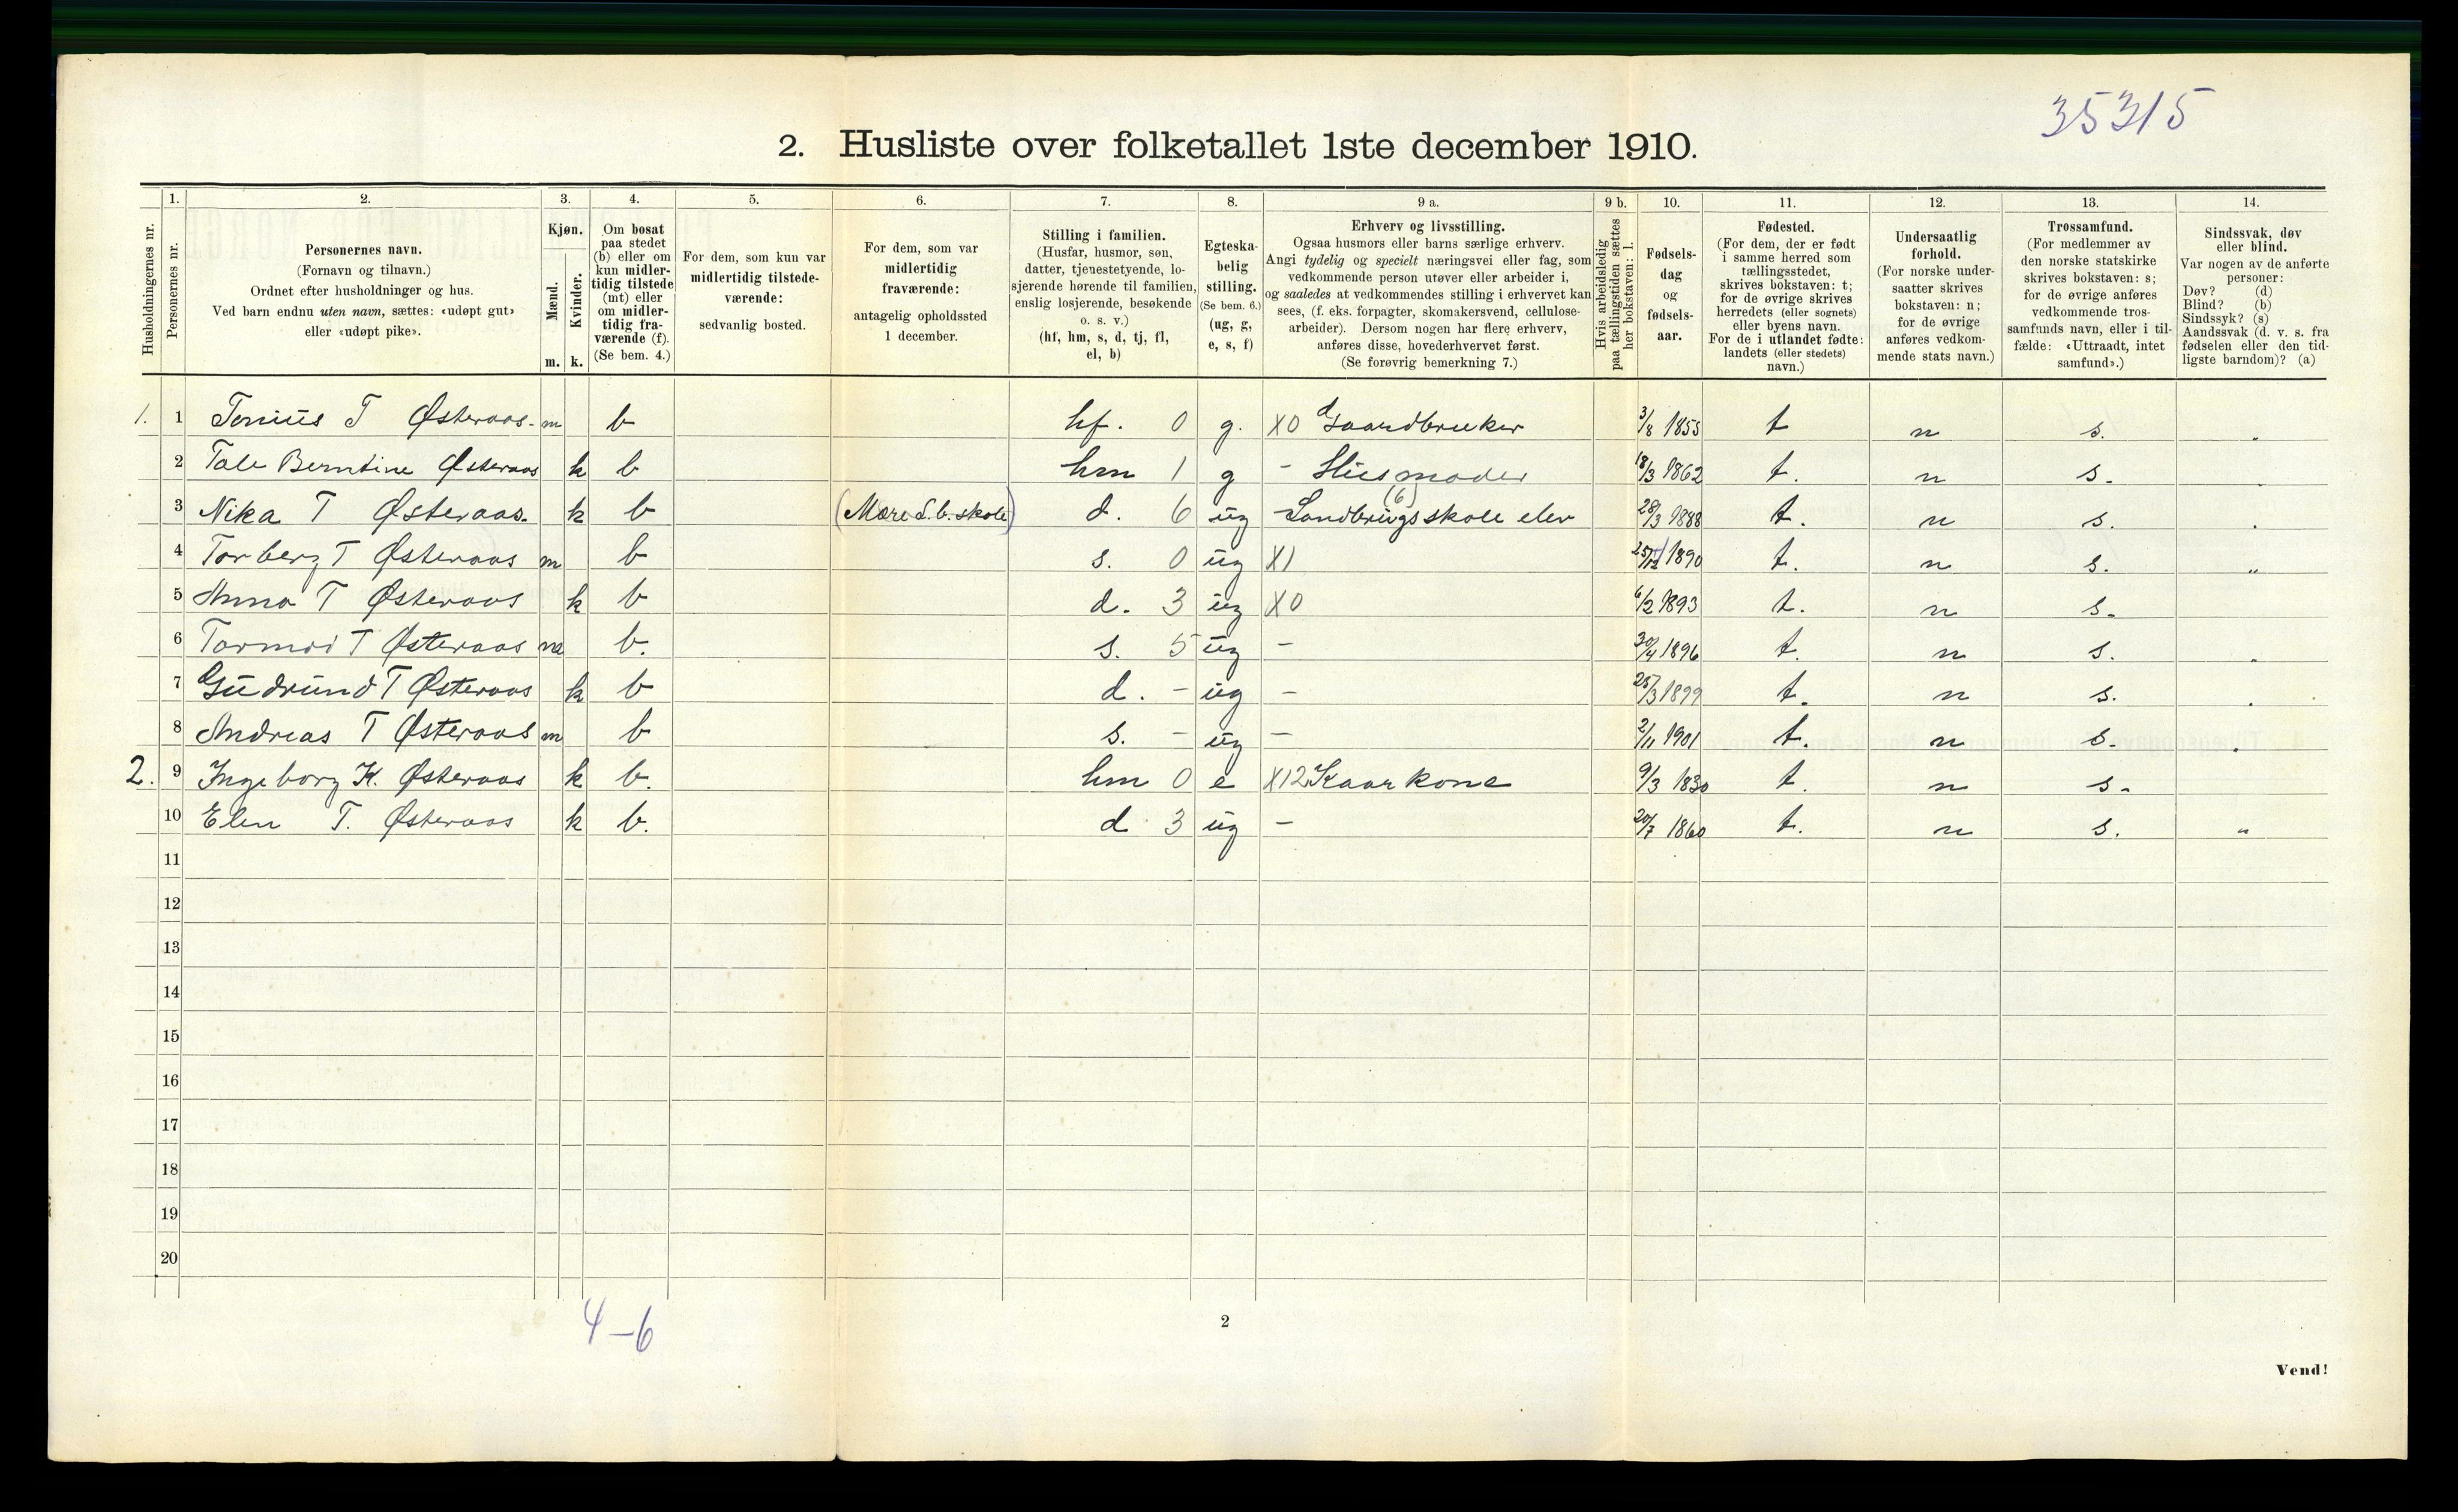 35315
2. Husliste over folketallet 1ste december 1910.
Husholdningernes nr.
1. Personernes nr.
2. Personernes navn.
(Fornavn og tilnavn.)
Ordnet efter husholdninger og hus.
Ved barn endnu uten navn, sættes: «udøpt gut»
eller «udøpt pike».
3. Kjøn.
Mænd. m.
Kvinder. k.
4. Om bosat
paa stedet
(b) eller om
kun midler-
tidig tilstede
(mt) eller
om midler-
tidig fra-
værende (f).
(Se bem. 4.)
5. For dem, som kun var
midlertidig tilstede-
værende:
sedvanlig bosted.
6. For dem, som var
midlertidig
fraværende:
antagelig opholdssted
1 december.
7. Stilling i familien.
(Husfar, husmor, søn,
datter, tjenestetyende, lo-
sjerende hørende til familien,
enslig losjerende, besøkende
o. s. v.)
(hf, hm, s, d, tj, fl,
el, b)
8. Egteska-
belig
stilling.
(Se bem. 6.)
(ug, g,
e, s, f)
9 a. Erhverv og livsstilling.
Ogsaa husmors eller barns særlige erhverv.
Angi tydelig og specielt næringsvei eller fag, som
vedkommende person utøver eller arbeider i,
og saaledes at vedkommendes stilling i erhvervet kan
sees, (f. eks. forpagter, skomakersvend, cellulose-
arbeider). Dersom nogen har flere erhverv,
anføres disse, hovederhvervet først.
(Se forøvrig bemerkning 7.)
9 b. Hvis arbeidsledig
paa tællingstiden sættes
her bokstaven: l.
10. Fødsels-
dag
og
fødsels-
aar.
11. Fødested.
(For dem, der er født
i samme herred som
tællingsstedet,
skrives bokstaven: t;
for de øvrige skrives
herredets (eller sognets)
eller byens navn.
For de i utlandet fødte:
landets (eller stedets)
navn.)
12. Undersaatlig
forhold.
(For norske under-
saatter skrives
bokstaven: n;
for de øvrige
anføres vedkom-
mende stats navn.)
13. Trossamfund.
(For medlemmer av
den norske statskirke
skrives bokstaven: s;
for de øvrige anføres
vedkommende tros-
samfunds navn, eller i til-
fælde: «Uttraadt, intet
samfund».)
14. Sindssvak, døv
eller blind.
Var nogen av de anførte
personer:
Døv? (d)
Blind? (b)
Sindssyk? (s)
Aandssvak (d. v. s. fra
fødselen eller den tid-
ligste barndom)? (a)
1. 1 Tonius T Østeraas. m b hf. 0 g. X0 Gaardbruker 3/8 1855 t n s.
2 Tale Berntine Østeraas k b hm 1 g - Husmoder 18/3 1862 t. n s.
3 Nika T Østeraas. k b (Mære L.b. skole) d. 6 ug Landbrugsskole elev (6) 28/3 1888 t. n s.
4 Torberg T Østeraas m b s. 0 ug X1 25/12 1890 t. n s. "
5 Anna T Østeraas k b d. 3 ug X0 6/2 1893 t. n s.
6 Tormod T Østeraas m b. s. 5 ug - 30/4 1896 t. n s.
7 Gudrund T Østeraas k b d. - ug - 25/3 1899 t. n s.
8 Andreas T Østeraas m b s. - ug - 2/11 1901 t. n s.
2. 9 Ingeborg K. Østeraas k b. hm 0 e X12 Kaarkone 9/3 1830 t. n s.
10 Elen T. Østeraas k b. d 3 ug - 20/7 1860 t. n s. "
11
12
13
14
15
16
17
18
19
20
4-6
2
Vend!